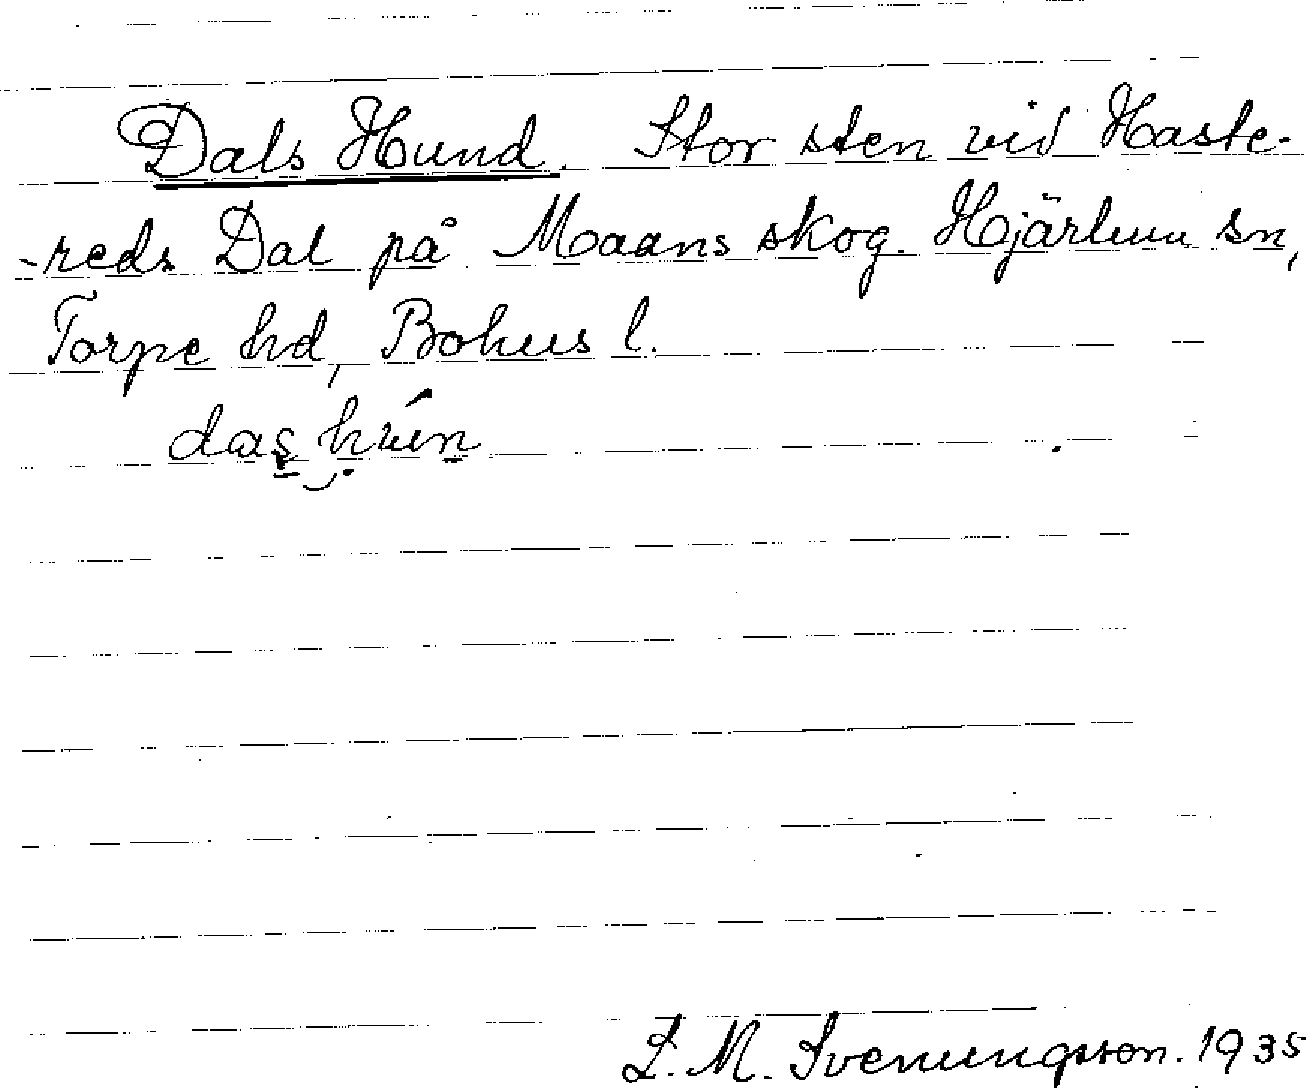 Dals Hund. Stor sten vid Haste-
-reds Dal på Maans skog. Hjärtum sn,
Torpe hd, Bohus l.
das hun
L. M. Svenungsson. 1935